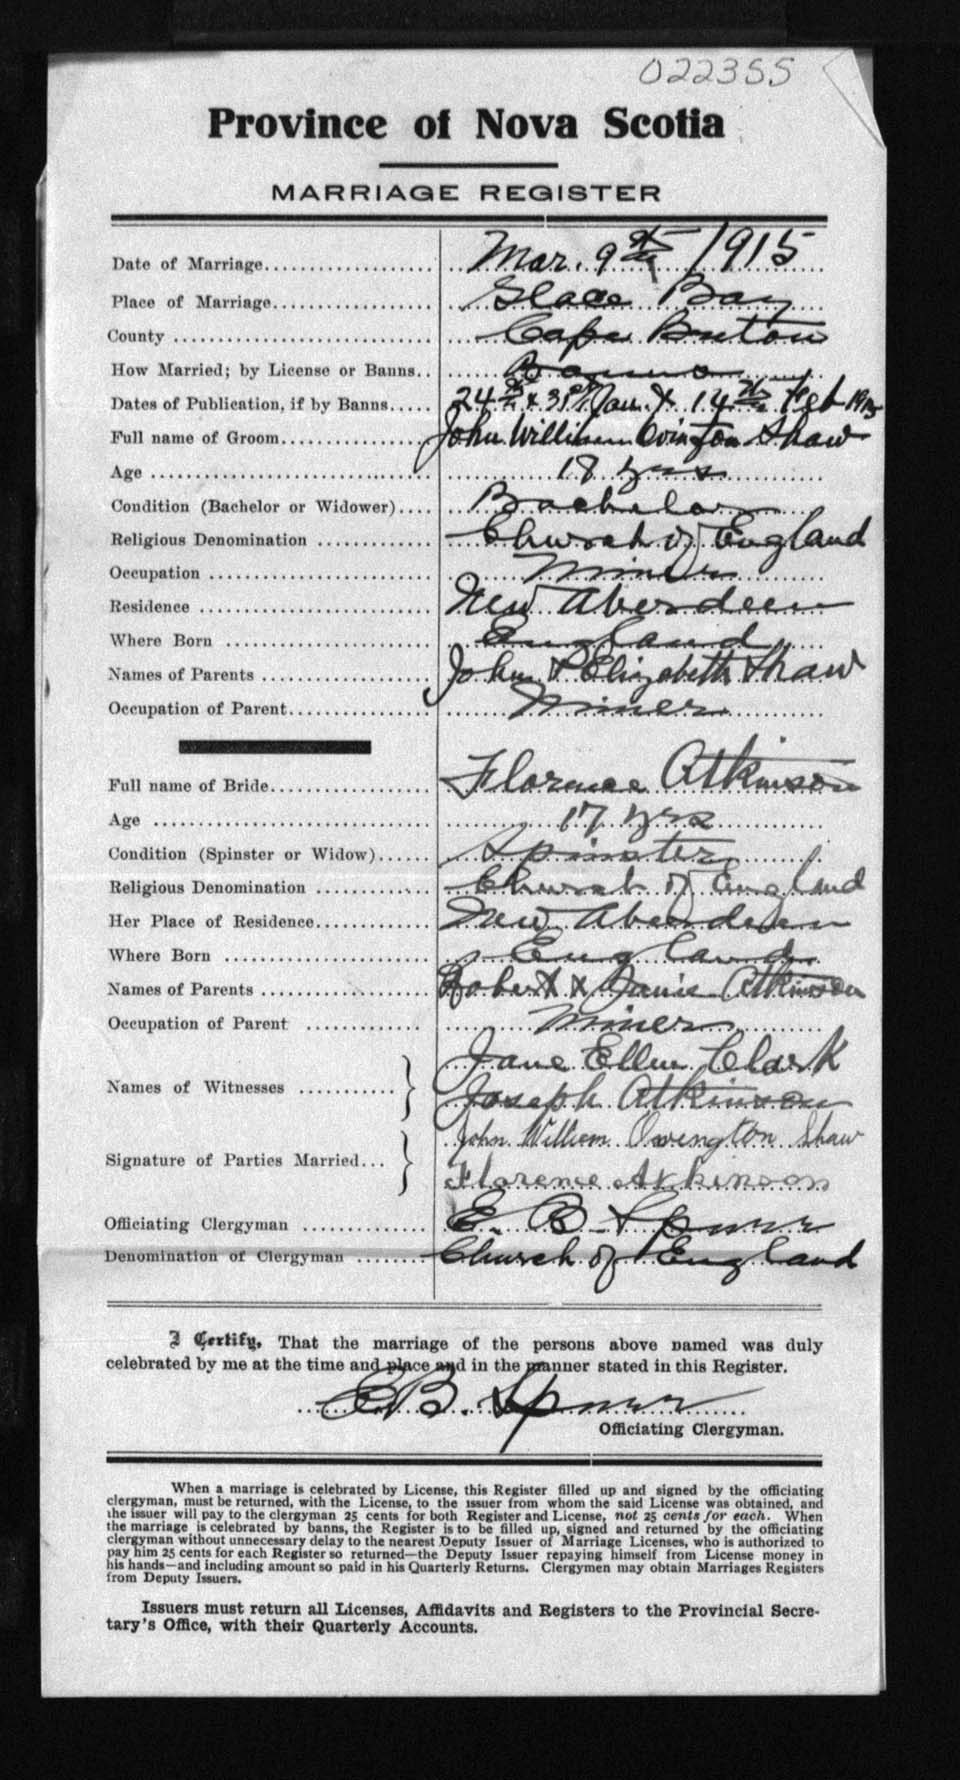 022355
Province of Nova Scotia
MARRIAGE REGISTER
Date of Marriage Mar. 9th 1915
Place of Marriage Glace Bay
County Cape Breton
How Married; by License or Banns Banns
Dates of Publication, if by Banns 24th & 31st Jan. & 14th Feb 1915
Full name of Groom John William Ovington Shaw
Age 18 yrs
Condition (Bachelor or Widower) Bachelor
Religious Denomination Church of England
Occupation Miner
Residence New Aberdeen
Where Born England
Names of Parents John & Elizabeth Shaw
Occupation of Parent Miner
Full name of Bride Florence Atkinson
Age 17 yrs
Condition (Spinster or Widow) Spinster
Religious Denomination Church of England
Her Place of Residence New Aberdeen
Where Born England
Names of Parents Robert & Janie Atkinson
Occupation of Parent Miner
Jane Ellen Clark
Names of Witnesses
Joseph Atkinson
John William Ovington Shaw
Signature of Parties Married
Florence Atkinson
Officiating Clergyman E. B. Spurr
Denomination of Clergyman Church of England
I Certify, That the marriage of the persons above named was duly
celebrated by me at the time and place and in the manner stated in this Register.
E. B. Spurr
Officiating Clergyman.
When a marriage is celebrated by License, this Register filled up and signed by the officiating
clergyman, must be returned, with the License, to the issuer from whom the said License was obtained, and
the issuer will pay to the clergyman 25 cents for both Register and License, not 25 cents for each. When
the marriage is celebrated by banns, the Register is to be filled up, signed and returned by the officiating
clergyman without unnecessary delay to the nearest Deputy Issuer of Marriage Licenses, who is authorized to
pay him 25 cents for each Register so returned—the Deputy Issuer repaying himself from License money in
his hands—and including amount so paid in his Quarterly Returns. Clergymen may obtain Marriages Registers
from Deputy Issuers.
Issuers must return all Licenses, Affidavits and Registers to the Provincial Secre-
tary's Office, with their Quarterly Accounts.